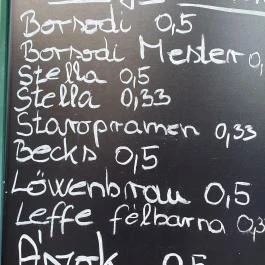 Borsodi 0,5
Borsodi Mester 0,
Stella 0,5
Stella 0,33
Staropramen 0,33
Becks 0,5
Löwenbrau 0,5
Leffe félbarna 0,3